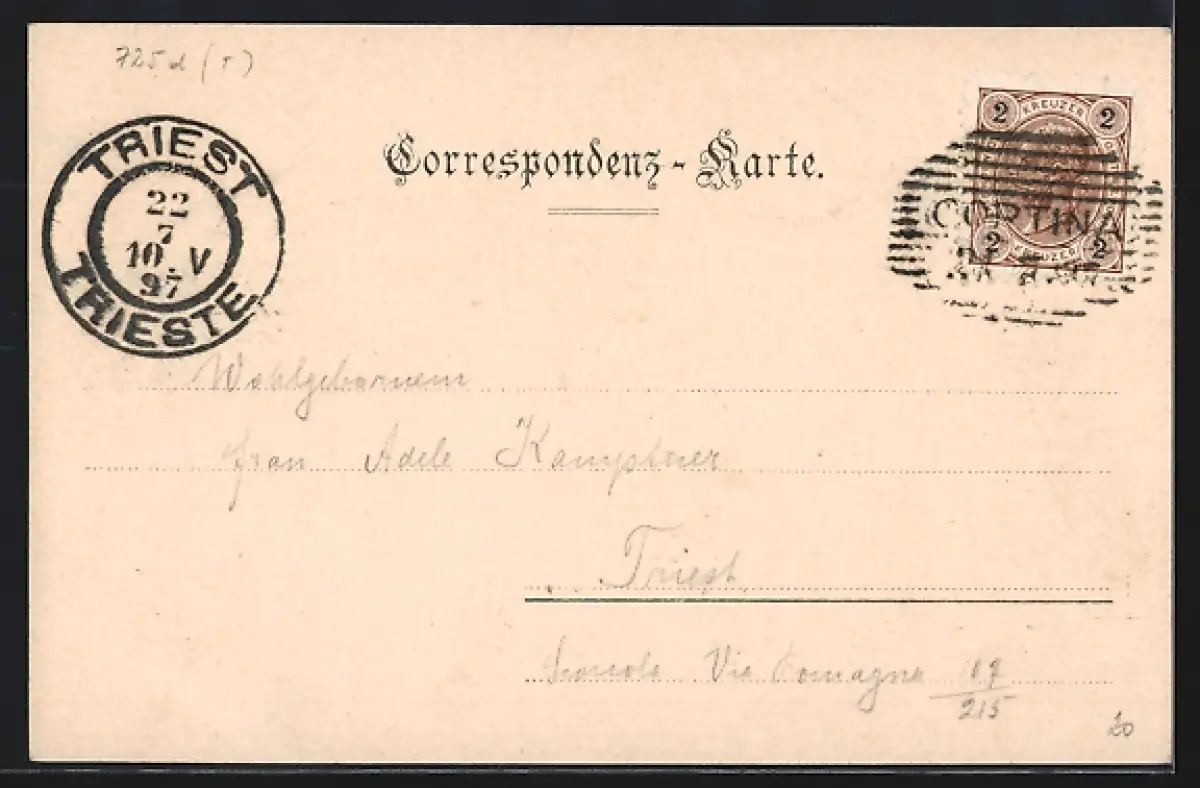 725d (r)
TRIEST
22
7
10 V
97
TRIESTE
Correspondenz-Karte.
2 KREUZER 2
CORTINA
2 KREUZER 2
Wohlgebornem
Frau Adele Kamptner
Triest
Via Romagna 107
215
20